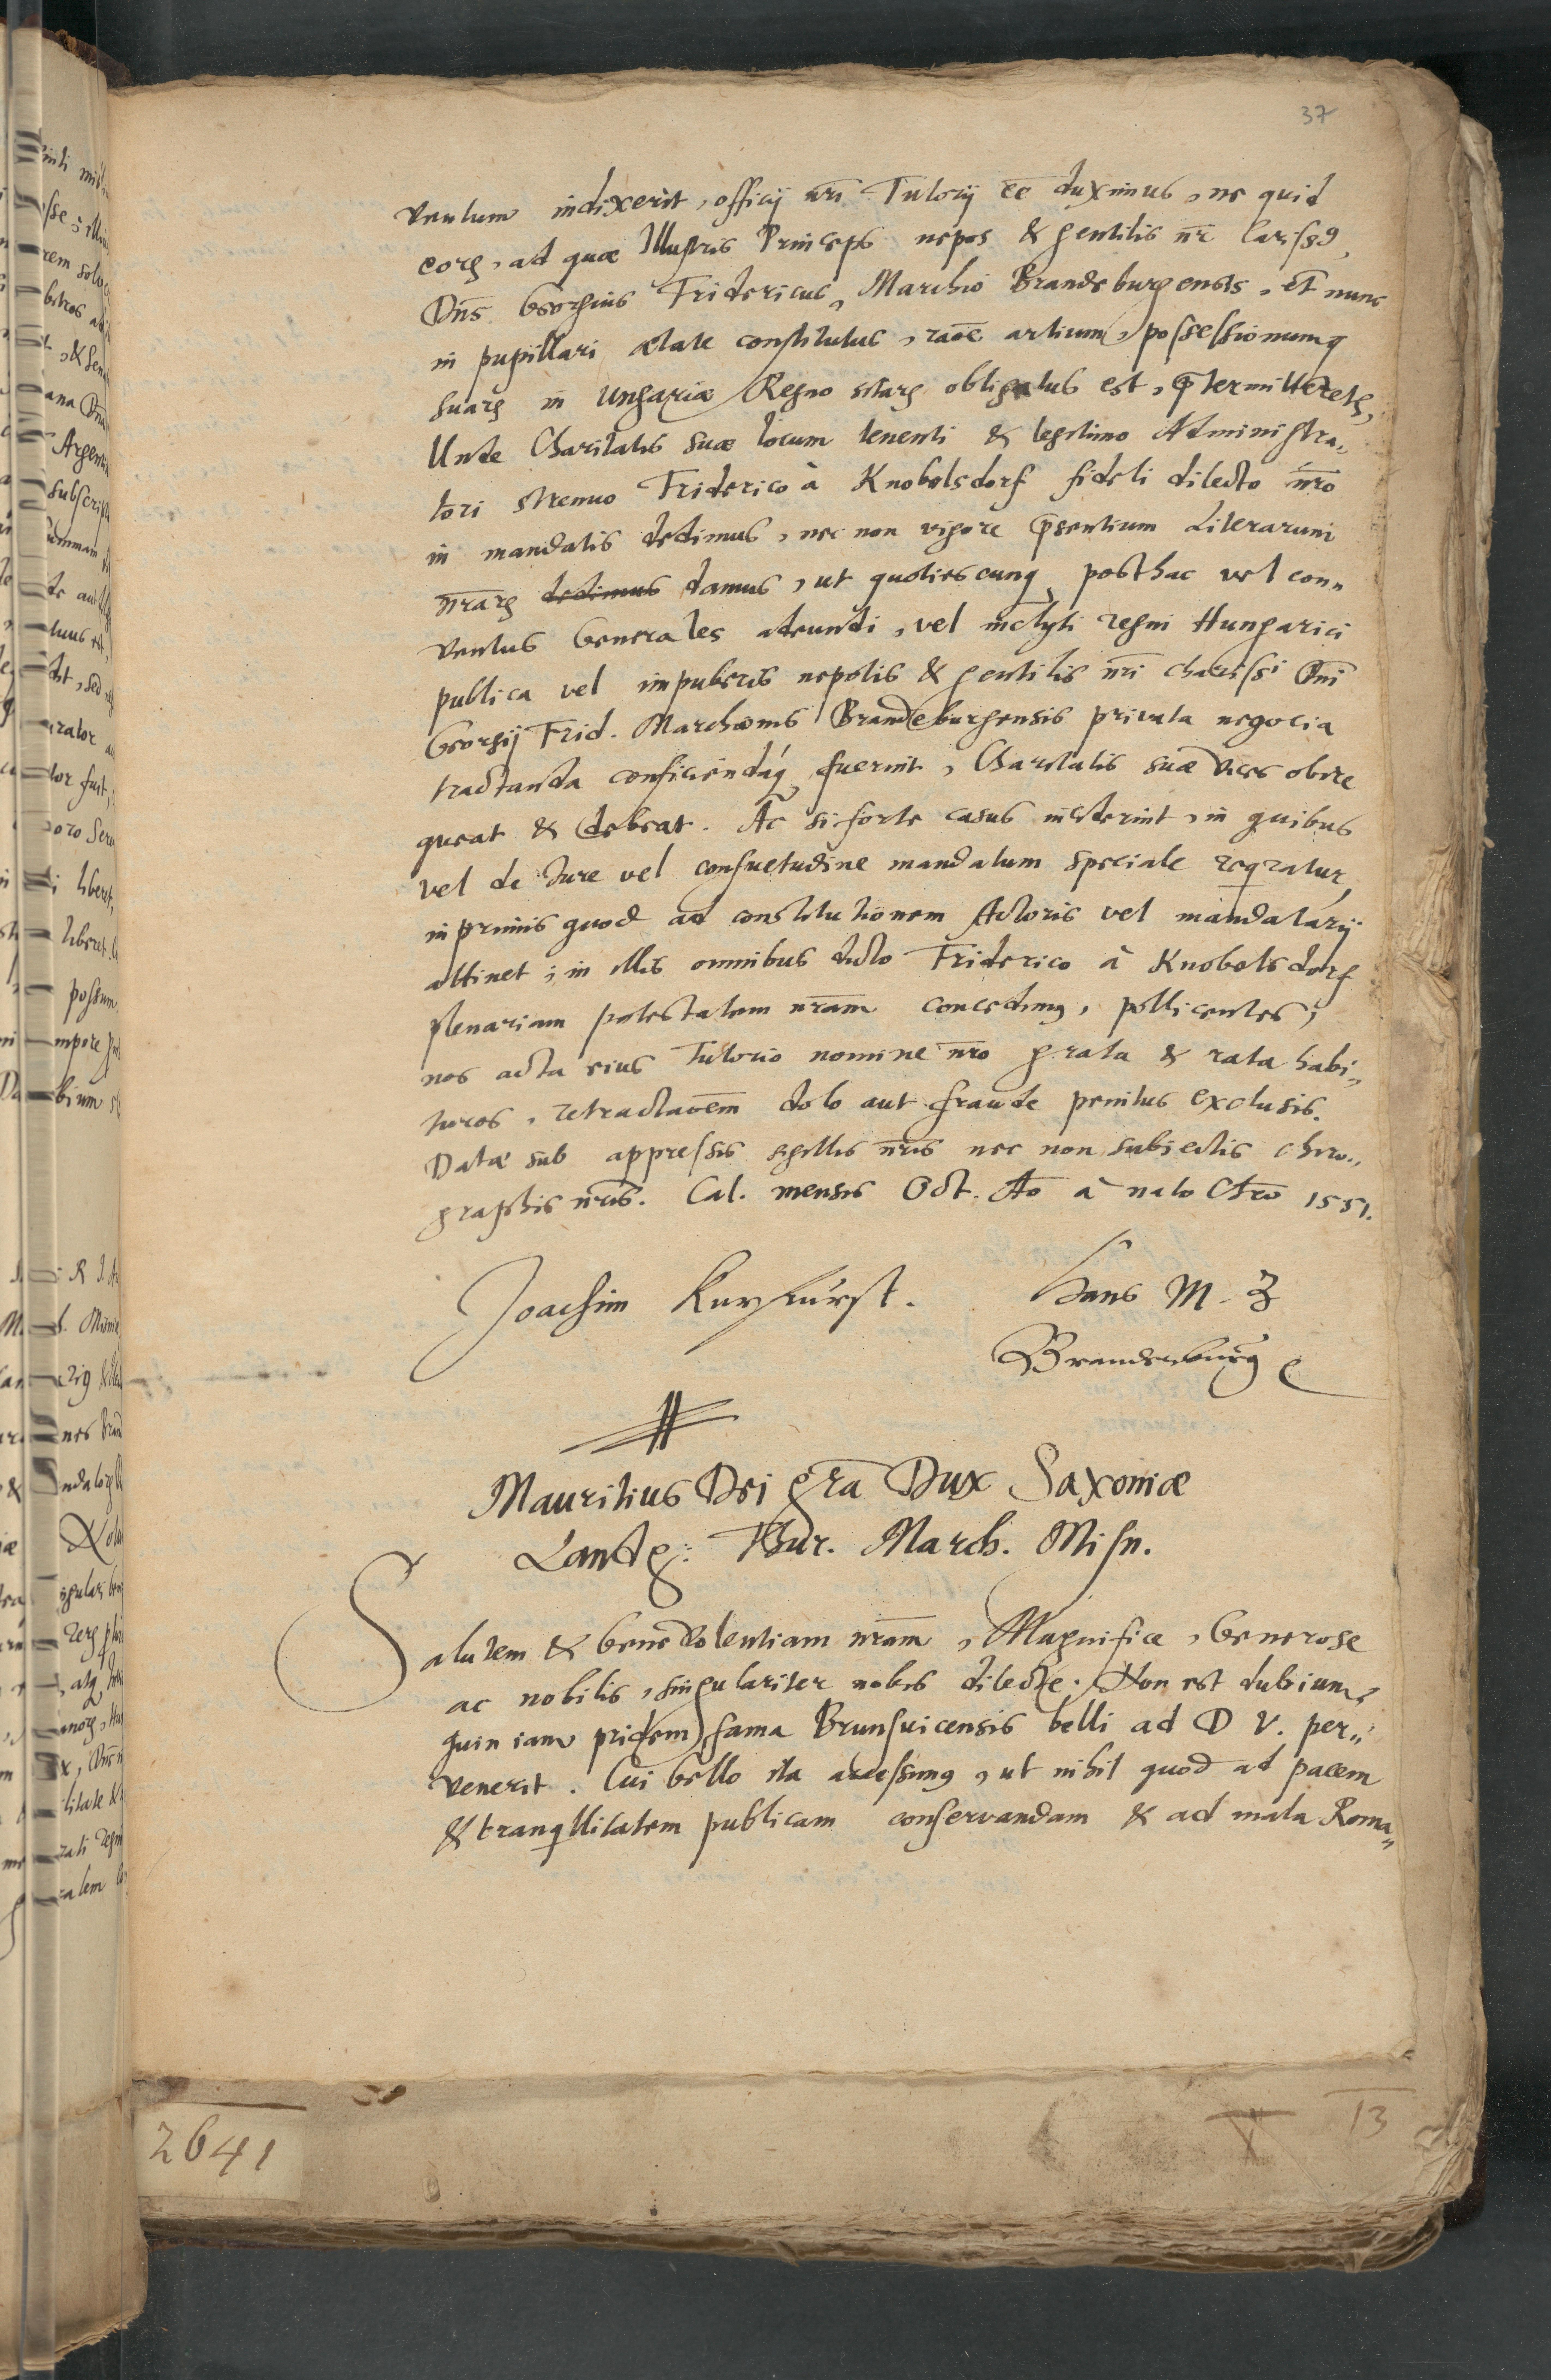 37
ventum indixerit, officij nr̄i Tutorij eē duximus, ne quid
eorꝝ, ad quæ Illustris Princeps nepos & gentilis nr̄ cariss9,
Dn̄s Georgius Fridericus, Marchio Brandeburgensis, et nunc
in pupillari ætate constitutus, raōe artium, possessionumq́
suarꝝ in Ungariæ Regno sitarꝝ obligatus est, p̄termitteretꝝ,
Unde Charitatis suæ locum tenenti & legitimo Administra„
tori strenuo Friderico à Knobelsdorf fideli dilecto nr̄o
in mandatis dedimus, nec non vigore p̄sentium Literarum
nr̄arꝝ dedimus damus, ut quotiescunq́, posthac vel con„
ventus Generales adeundi, vel inclyti regni Hungarici
publica vel impuberis nepotis & gentilis nr̄i chariss̄i Dn̄i
Georgij Frid. Marchionis Brandeburgensis privata negocia
tractanda conficiendáq́, fuerint, Charitatis suæ vices obire
queat & debeat. Ac si forte casus inciderint, in quibus
vel de Jure vel consuetudine mandatum speciale reqratur,
inprimis quod ad constitutionem Actoris vel mandatarij
attinet, in illis omnibus dicto Friderico à Knobelsdorf
plenariam potestatem nr̄am concedim9, pollicentes,
nos acta eius Tutorio nomine nr̄o grata & rata habi„
turos, retractaōem dolo aut fraude penitus exclusis.
Datæ sub appressis sigillis nr̄is nec non subiectis chiro„
graphis nr̄is. Cal. mensis Oct. Ao à nato Chr̄o 1551.
Joachim Kurfürst. Hans M. Z
Brandenburg
Mauritius Dei gr̄a Dux Saxoniæ
Landg: Thur. March. Misn.
Salutem & benevolentiam nr̄am, Magnifice, Generose
ac nobilis, singulariter nobis dilecte. Non est dubium,
quin iam pridem fama Brunsuicensis belli ad D V. per„
venerit. Cui bello ita accessim9, ut nihil quod ad pacem
& tranqllitatem publicam conservandam & ad mala Roma„
2641
13